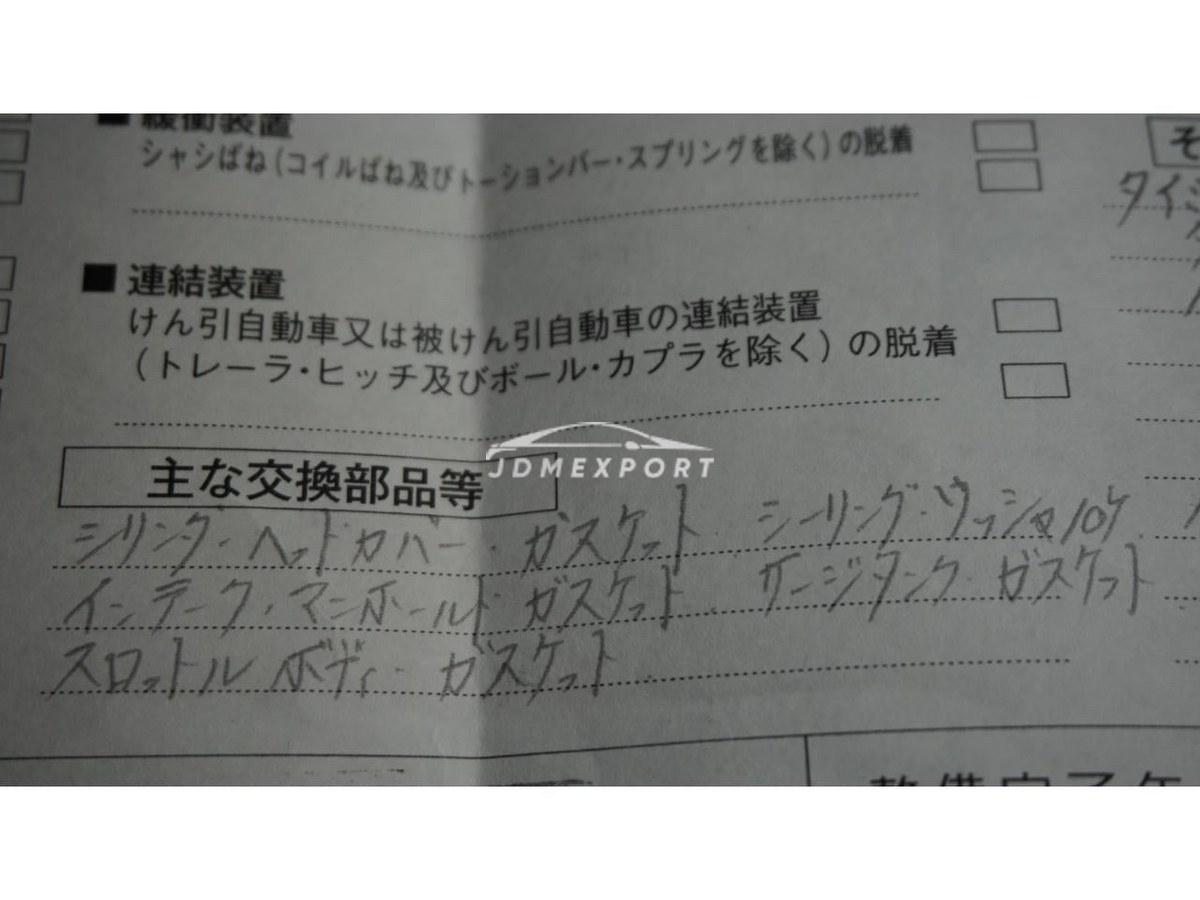 ■ 緩衝装置
シャシばね(コイルばね及びトーションバー・スプリングを除く)の脱着
そ
タイミ
■ 連結装置
けん引自動車又は被けん引自動車の連結装置
(トレーラ・ヒッチ及びボール・カプラを除く)の脱着
JDMEXPORT
主な交換部品等
シリンダ・ヘッドカバー・ガスケット シーリング・ワッシャ10ケ
インテーク・マニホールド ガスケット サージタンク・ガスケット
スロットル ボディ・ガスケット
整備完了年